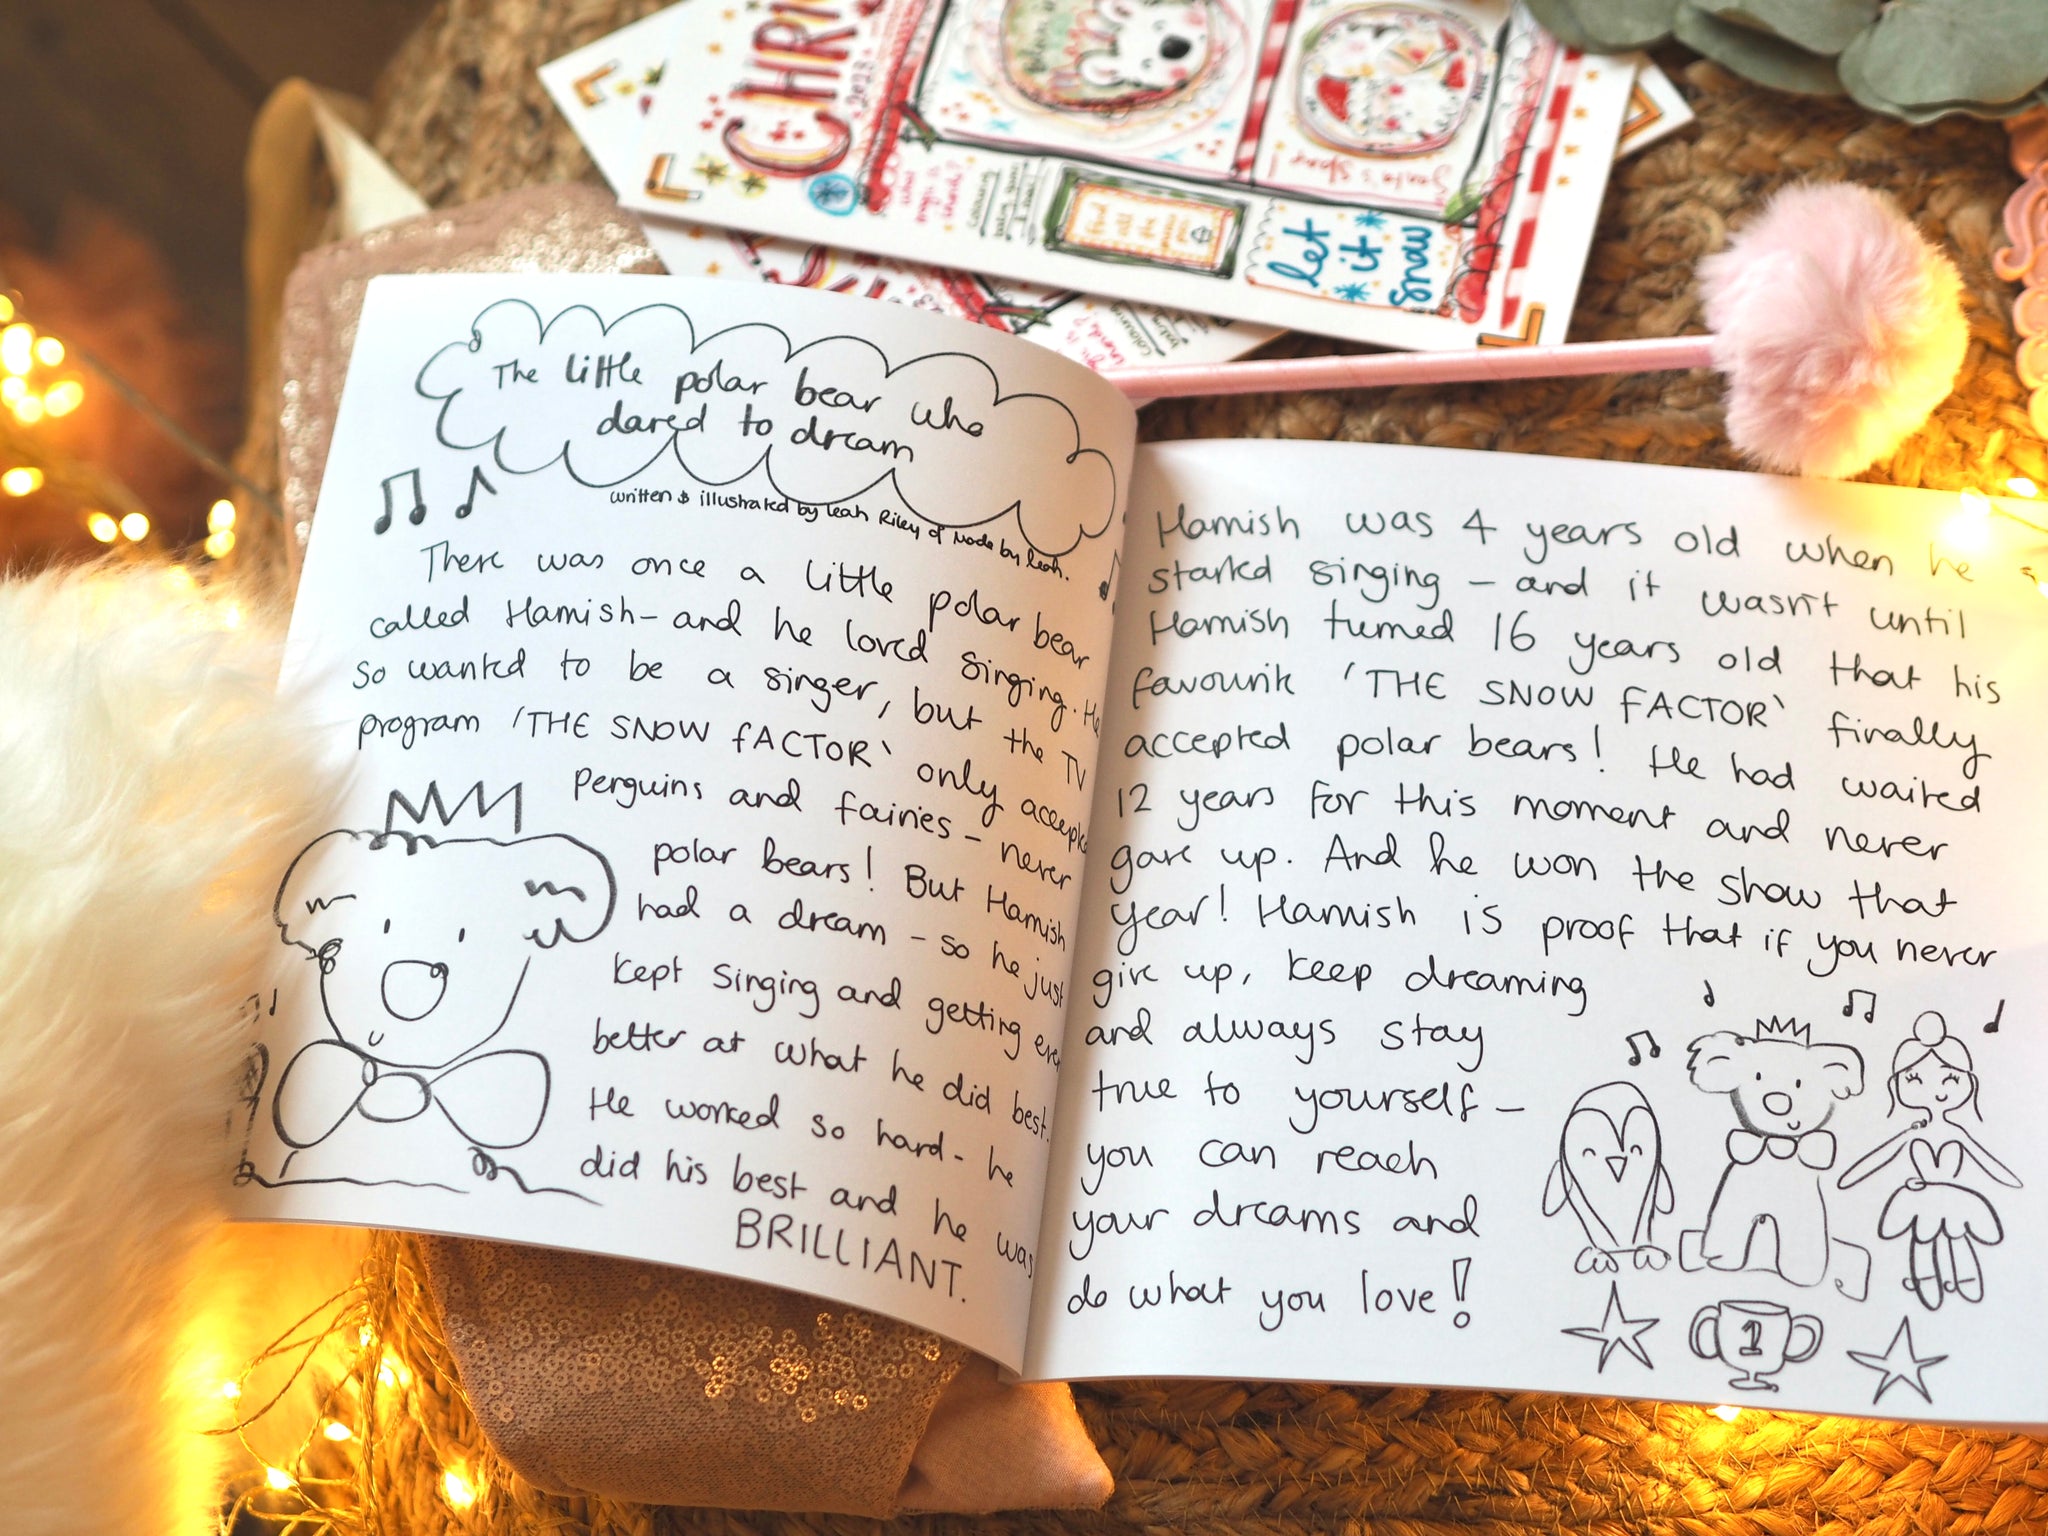 CHRI
2023
let
it
snow
Santa's Spot!
The little polar bear who
dared to dream
written & illustrated by Leah Riley of Made by Leah.
There was once a little polar bear
called Hamish - and he loved singing. He
so wanted to be a singer, but the TV
program 'THE SNOW FACTOR' only accepted
penguins and fairies - never
polar bears! But Hamish
had a dream - so he just
kept singing and getting even
better at what he did best.
He worked so hard - he
did his best and he was
BRILLIANT.
Hamish was 4 years old when he
started singing - and it wasn't until
Hamish turned 16 years old that his
favourite 'THE SNOW FACTOR' finally
accepted polar bears! He had waited
12 years for this moment and never
gave up. And he won the show that
year! Hamish is proof that if you never
give up, keep dreaming
and always stay
true to yourself -
you can reach
your dreams and
do what you love!
1